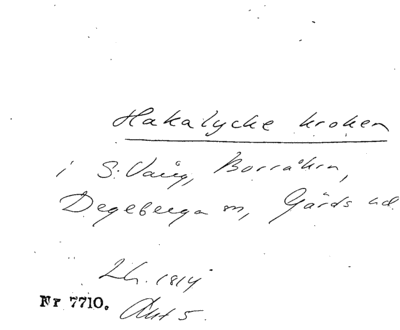 Hakalycke kroken
i S. Vång, Borråkra,
Degeberga sn, Gärds hd.
Lh. 1814
Nr 7710. Akt 5.